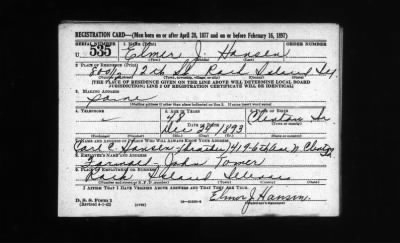 REGISTRATION CARD—(Men born on or after April 28, 1877 and on or before February 16, 1897)
SERIAL NUMBER 1. NAME (Print) ORDER NUMBER
U 535 Elmer J. Hansen
2. PLACE OF RESIDENCE (Print)
12th St. Rock Island Ill.
[THE PLACE OF RESIDENCE GIVEN ON THE LINE ABOVE WILL DETERMINE LOCAL BOARD
JURISDICTION; LINE 2 OF REGISTRATION CERTIFICATE WILL BE IDENTICAL]
3. MAILING ADDRESS
Same
4. TELEPHONE 5. AGE IN YEARS 6. PLACE OF BIRTH
48 Clinton
DATE OF BIRTH
Dec 24 1893 Ia
7. NAME AND ADDRESS OF PERSON WHO WILL ALWAYS KNOW YOUR ADDRESS
Carl C. Hansen (brother) Clinton
8. EMPLOYER'S NAME AND ADDRESS
John
9. PLACE OF EMPLOYMENT OR BUSINESS
Rock Island Illinois
I AFFIRM THAT I HAVE VERIFIED ABOVE ANSWERS AND THAT THEY ARE TRUE.
D. S. S. Form 1
(Revised 4-1-42)
Elmer J. Hansen